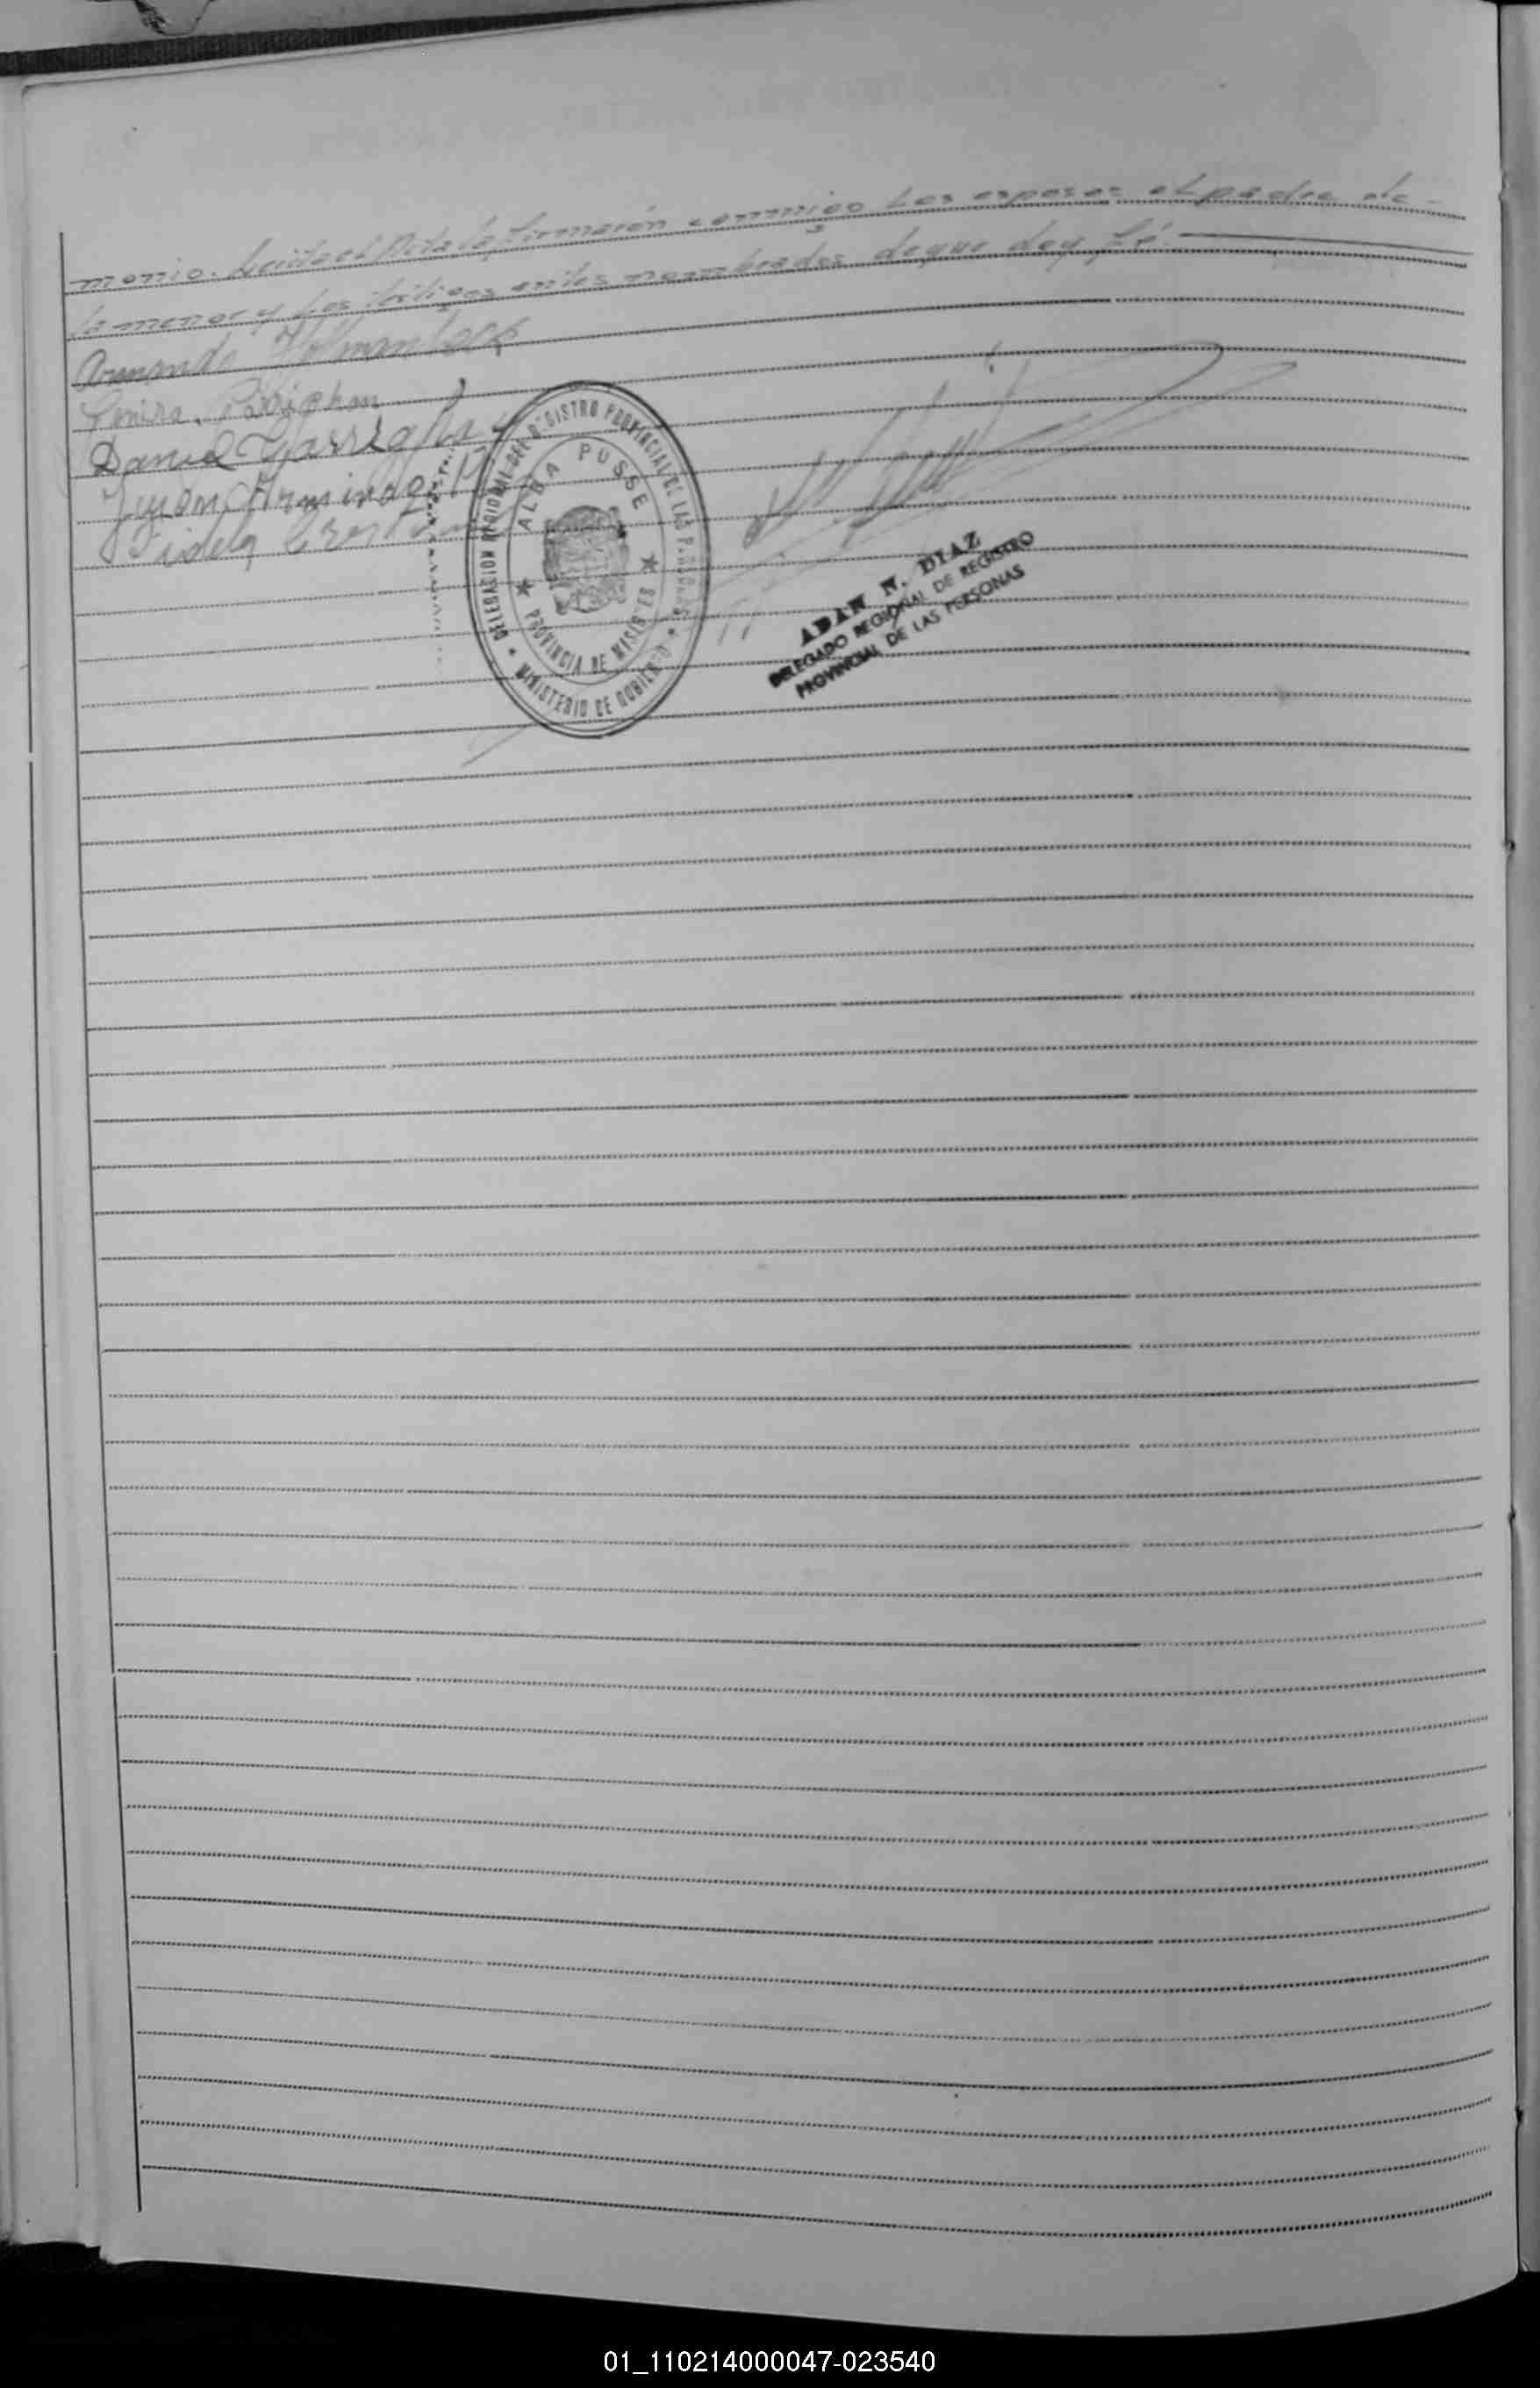 monio. Leida el Acta la firmarón conmigo Los esposos el padre de
la menor y Los testigos antes nombrados de que doy fé.
Armando
Daniel
Juan Armindo
Fidela
DELEGACION REGIONAL DEL REGISTRO PROVINCIAL DE LAS PERSONAS
ALBA POSSE
PROVINCIA DE MISIONES
MINISTERIO DE GOBIERNO
ADAN N. DIAZ
DELEGADO REGIONAL DE REGISTRO
PROVINCIAL DE LAS PERSONAS
01_110214000047-023540